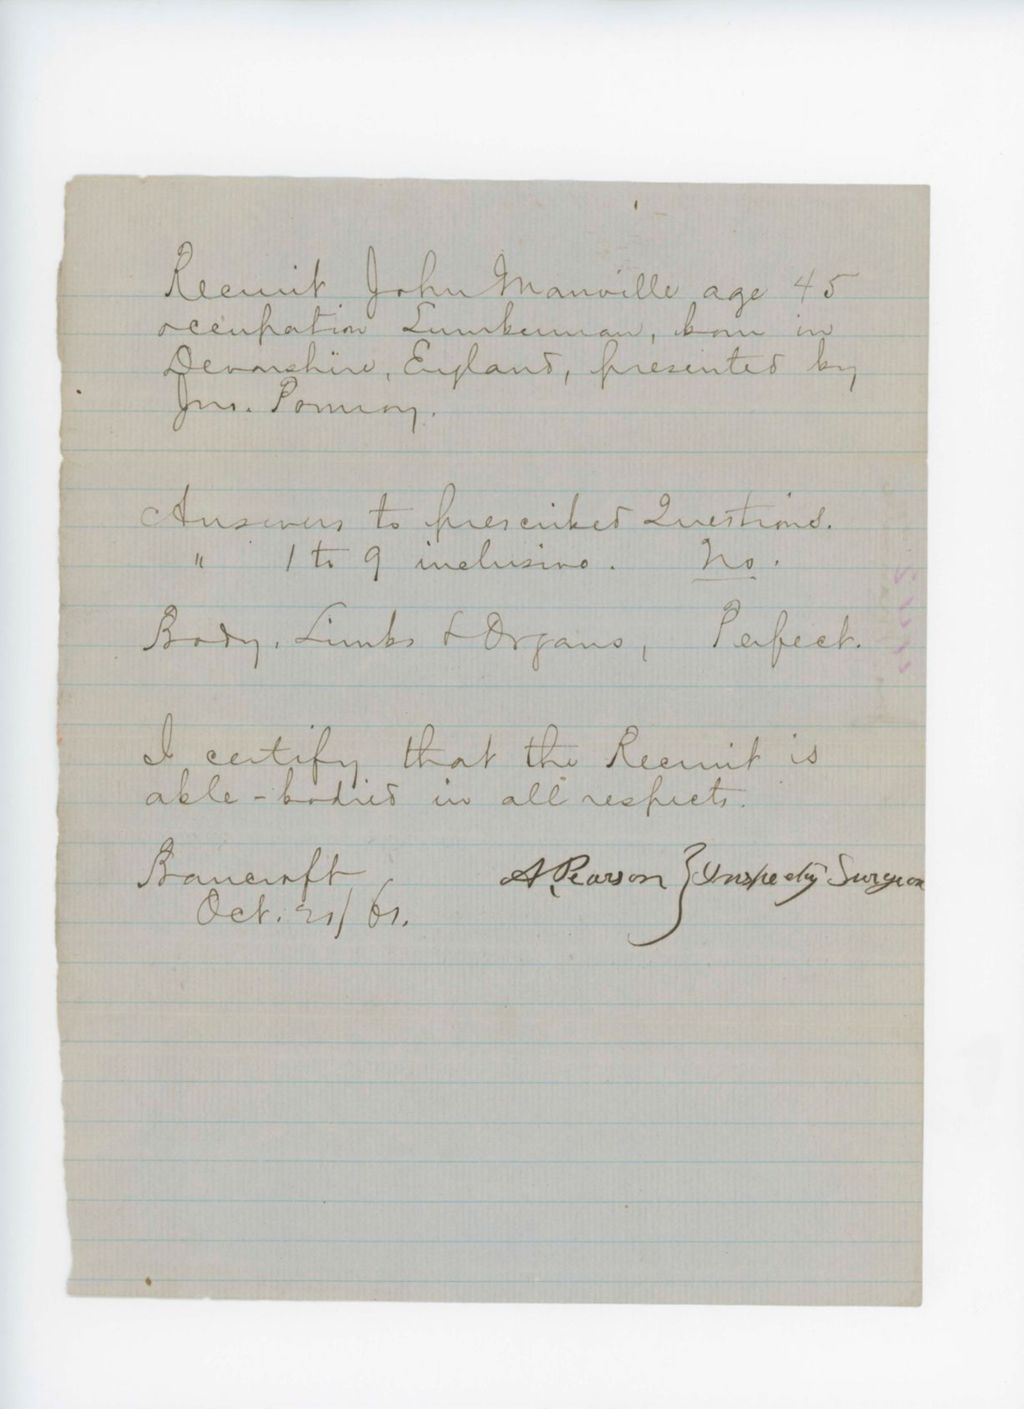 Recruit John Manville age 45
occupation Lumberman, born in
Devonshire, England, presented by
Jno. Pomroy.
Answers to prescribed Questions.
" 1 to 9 inclusive. No.
Body, Limbs & Organs, Perfect.
I certify that the Recruit is
able-bodied in all respects.
Bancroft A Pearson } Inspectg Surgeon
Oct. 21/61.